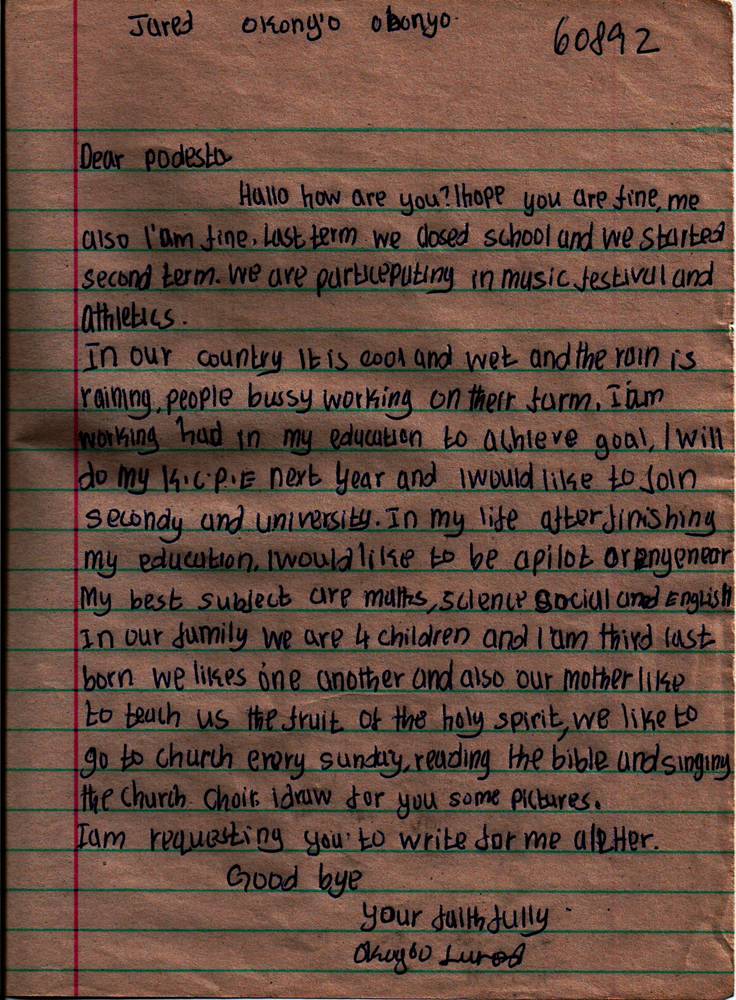 Jared okong'o obonyo.
60892
Dear podesta
Hallo how are you? I hope you are fine, me
also I'am fine. Last term we closed school and we started
second term. We are particeputing in music festival and
athletics.
In our country It is cool and wet and the rain is
raining, people bussy working on their farm. I am
working had in my education to achieve goal, I will
do my K.C.P.E next year and I would like to join
secondy and university. In my life after finishing
my education. I would like to be a pilot or engenear
My best subject are maths, science social and English
In our family we are 4 children and I am third last
born we likes one another and also our mother like
to teach us the fruit of the holy spirit, we like to
go to church every sunday, reading the bible and singing
the church choir. i draw for you some pictures.
Iam requesting you to write for me a letter.
Good bye
Your faithfully
Jared